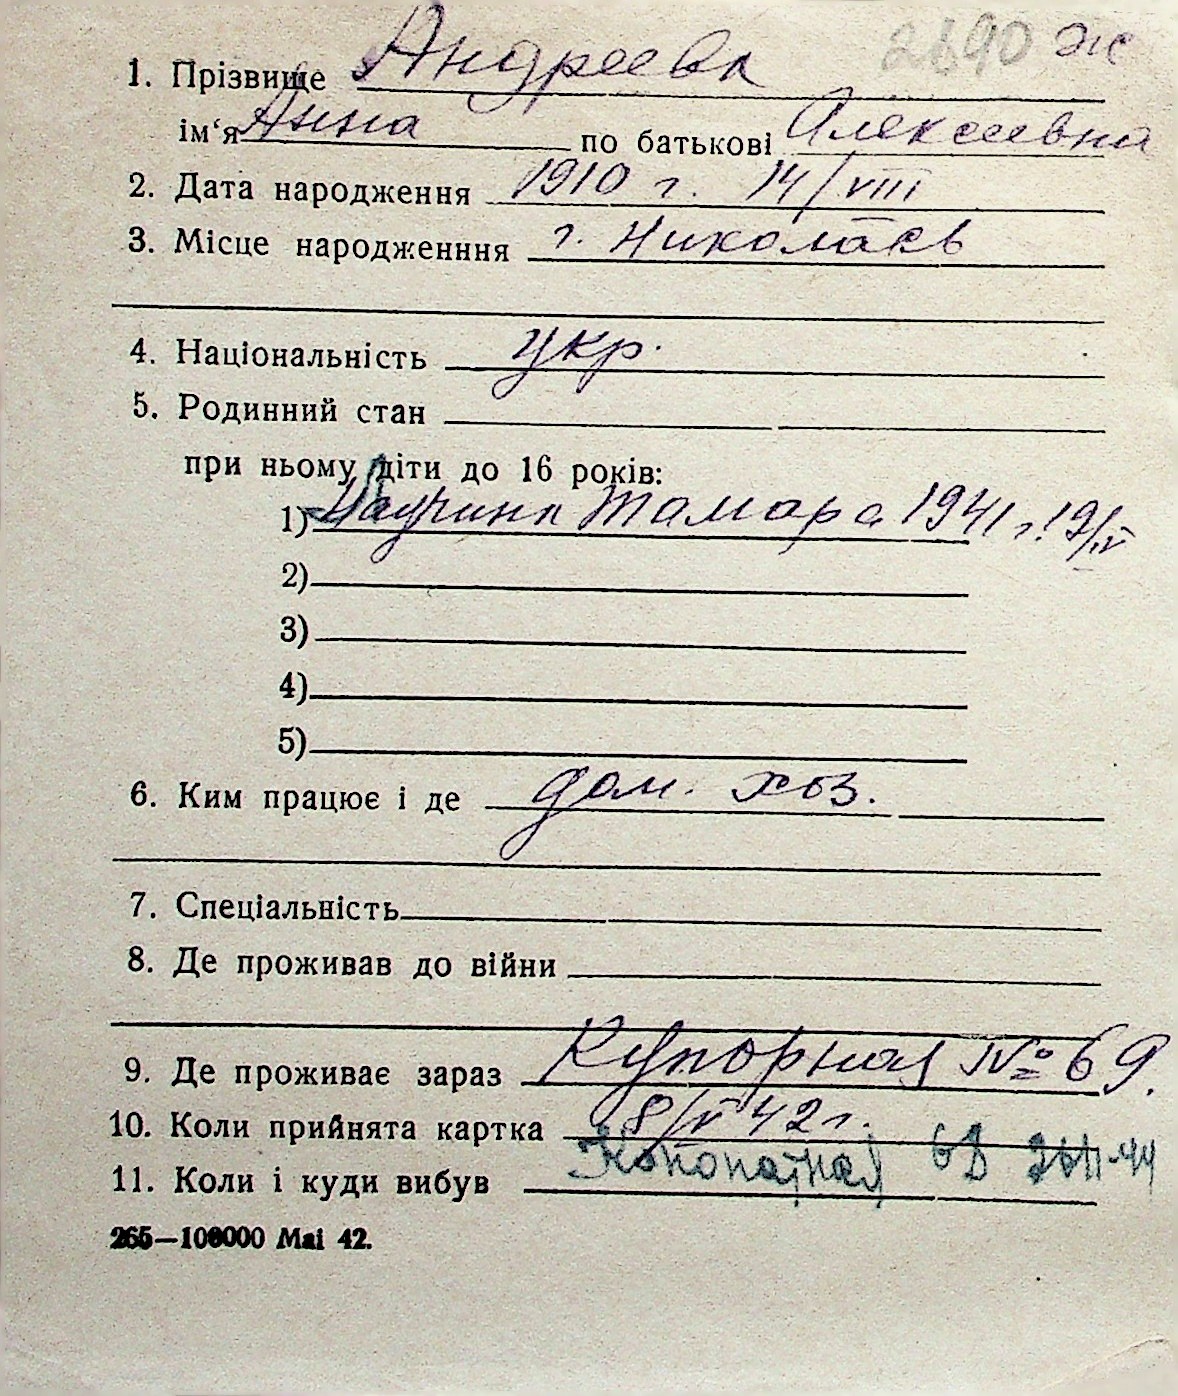 2690 ж
1. Прізвище Андреева
ім‘я Анна по батькові Алексеевна
2. Дата народження 1910 г. 14/VIII
3. Місце народженння г. Николаевь
4. Національність укр.
5. Родинний стан
при ньому діти до 16 років:
1) Тамара 1941 г. 19/IV
2)
3)
4)
5)
6. Ким працює і де дом. хоз.
7. Спеціальність
8. Де проживав до війни
9. Де проживає зараз Купорная № 69.
10. Коли прийнята картка 8/V 42 г.
11. Коли і куди вибув Конопатная
265—100000 Mai 42.